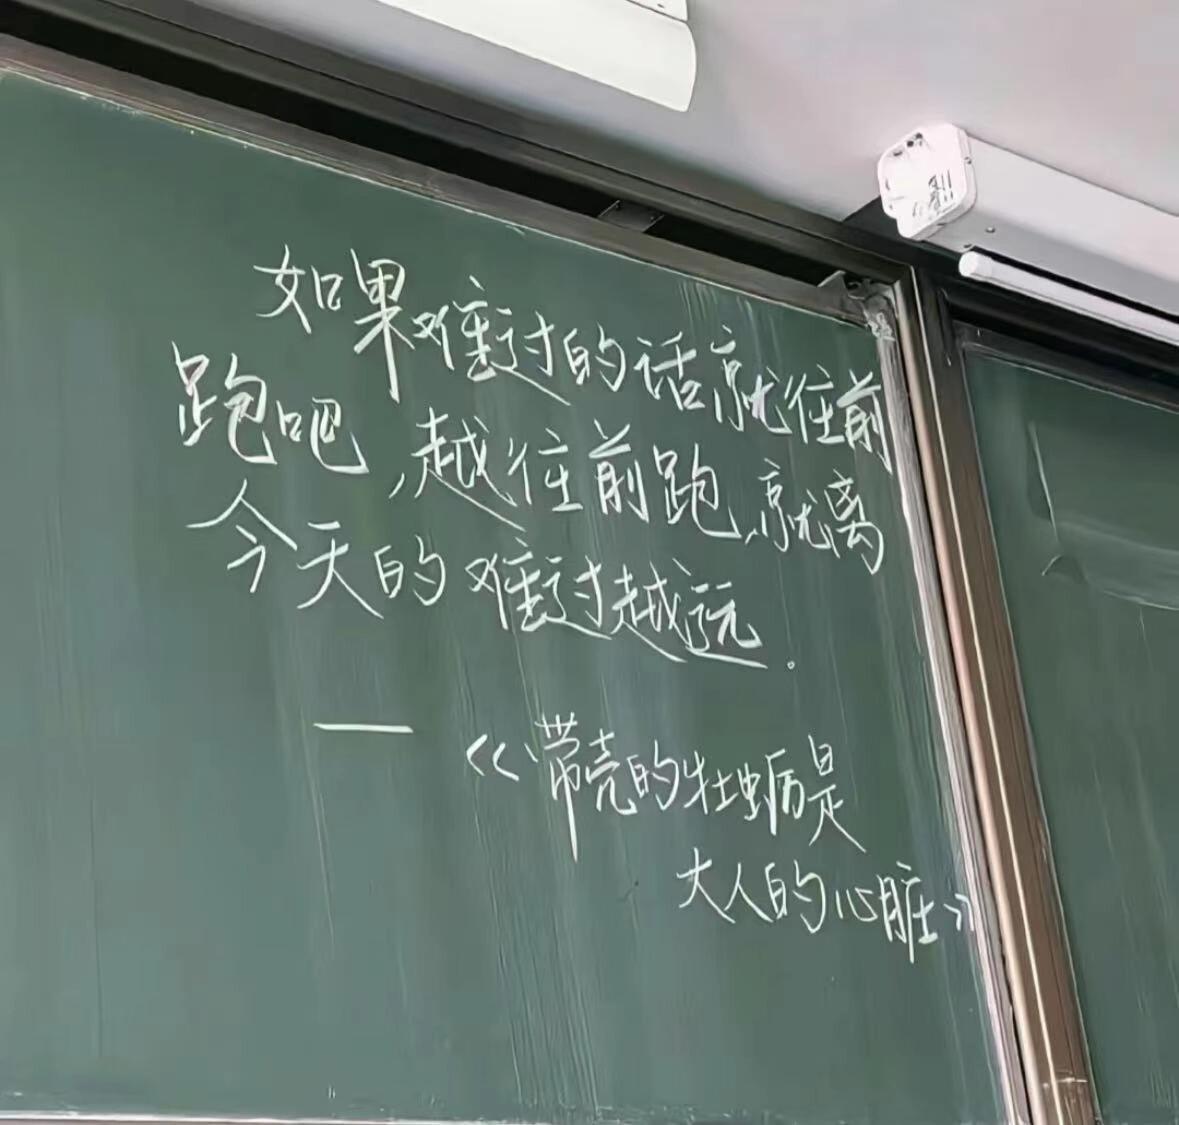 如果难过的话就往前
跑吧,越往前跑,就离
今天的难过越远.
—《带壳的牡蛎是
大人的心脏》